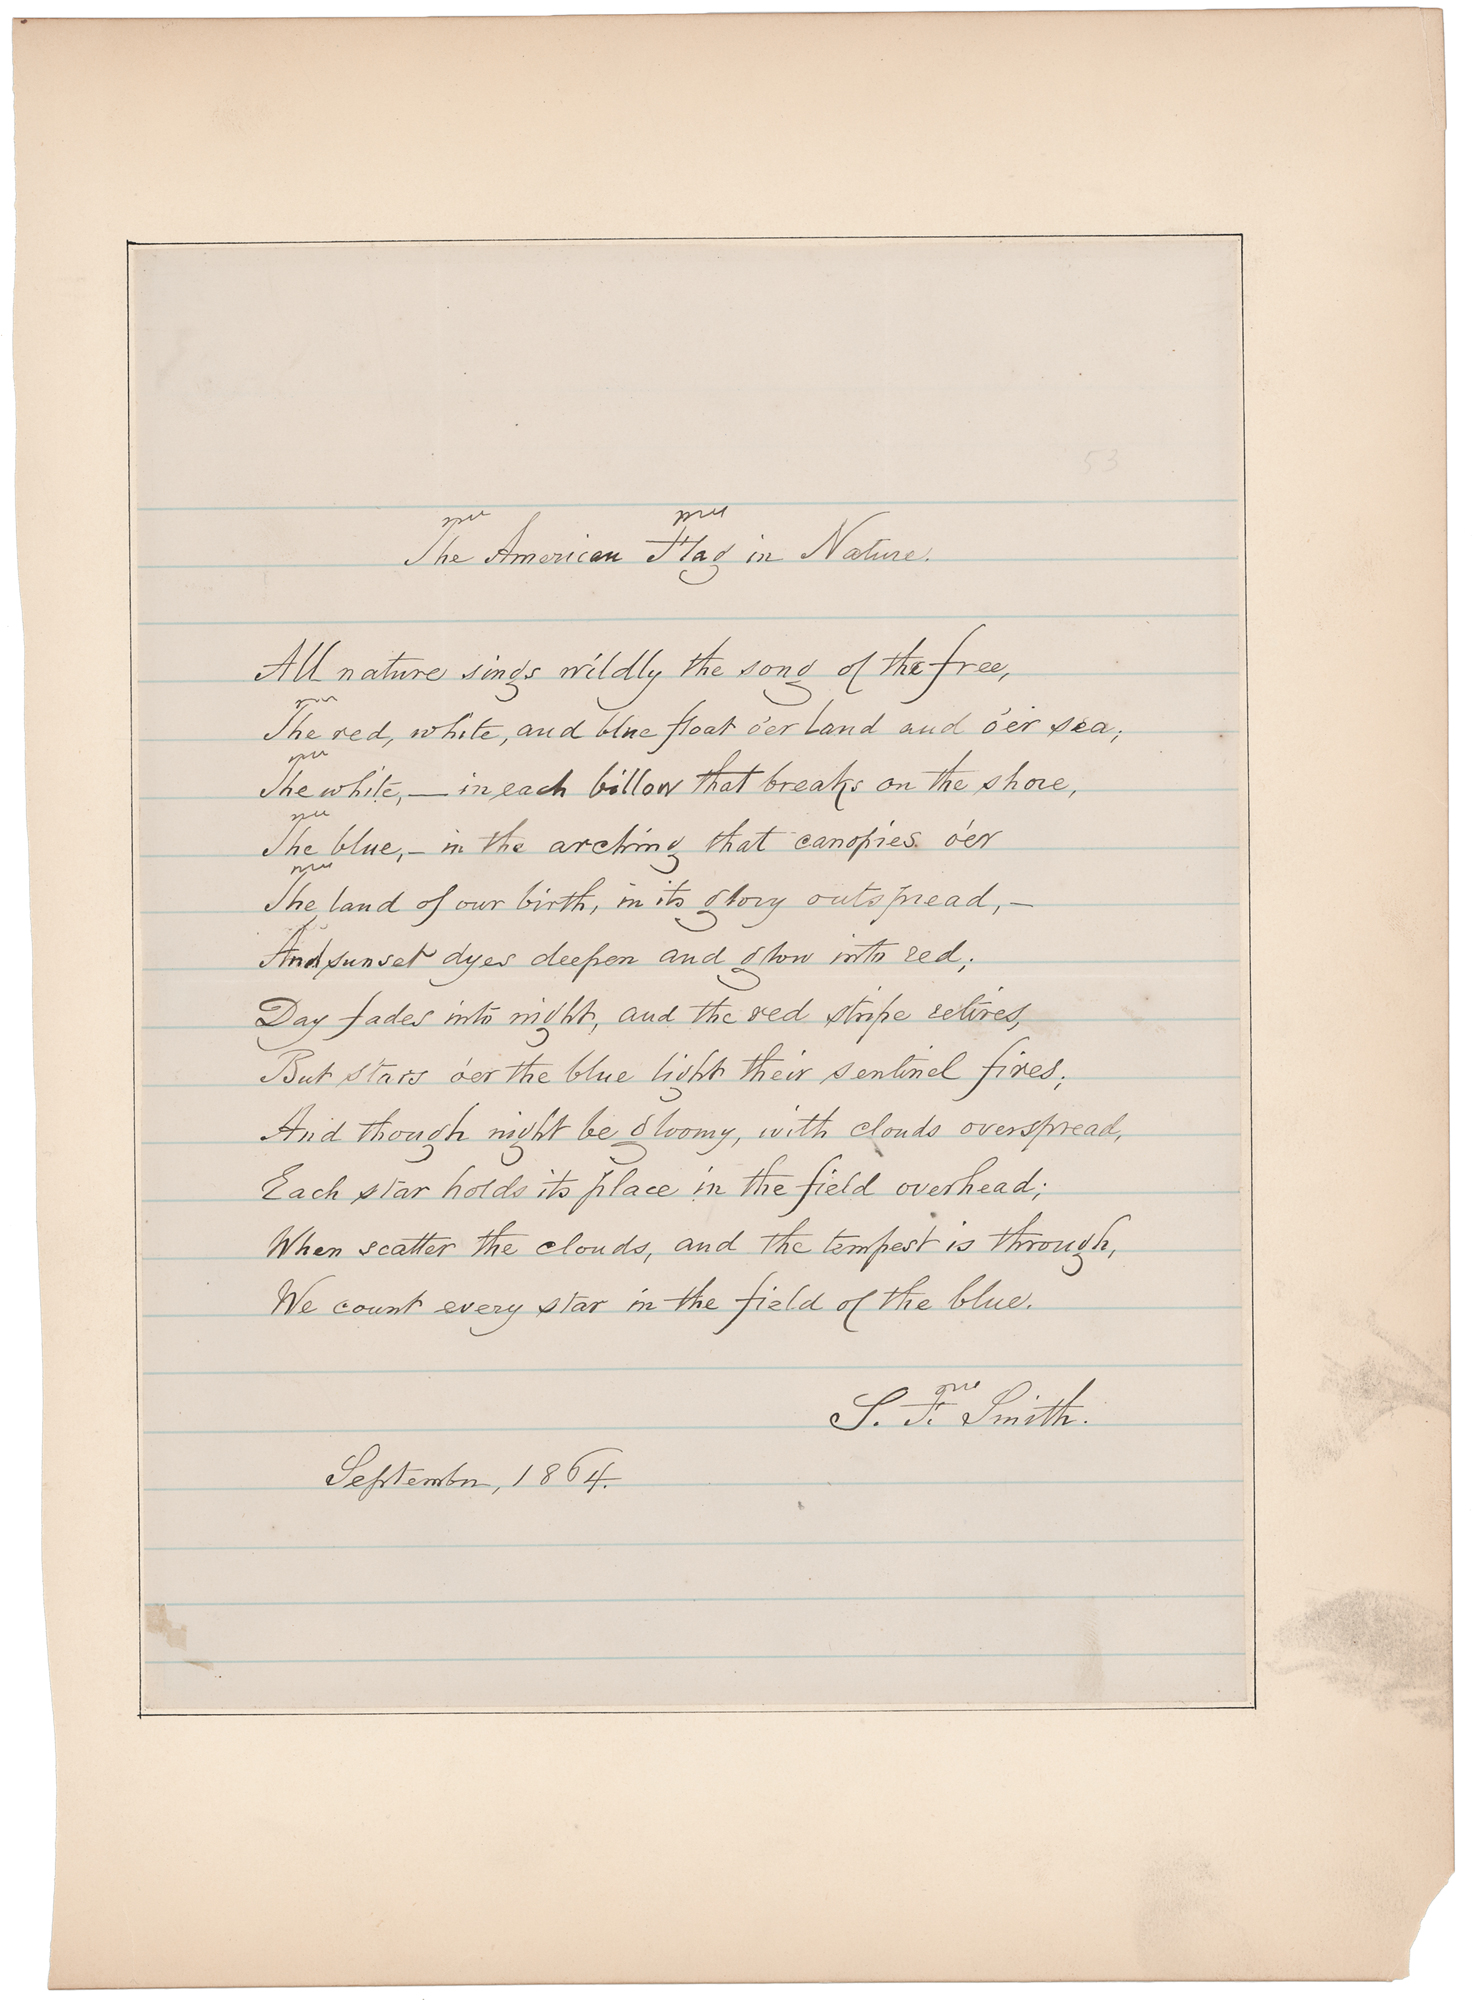 53
The American Flag in Nature.
All nature sings wildly the song of the free,
The red, white, and blue float o'er land and o'er sea;
The white, — in each billow that breaks on the shore,
The blue, — in the arching that canopies o'er
The land of our birth, in its glory outspread, —
And sunset dyes deepen and glow into red;
Day fades into night, and the red stripe retires,
But stars o'er the blue light their sentinel fires;
And though night be gloomy, with clouds overspread,
Each star holds its place in the field overhead;
When scatter the clouds, and the tempest is through,
We count every star in the field of the blue.
S. F. Smith.
September, 1864.